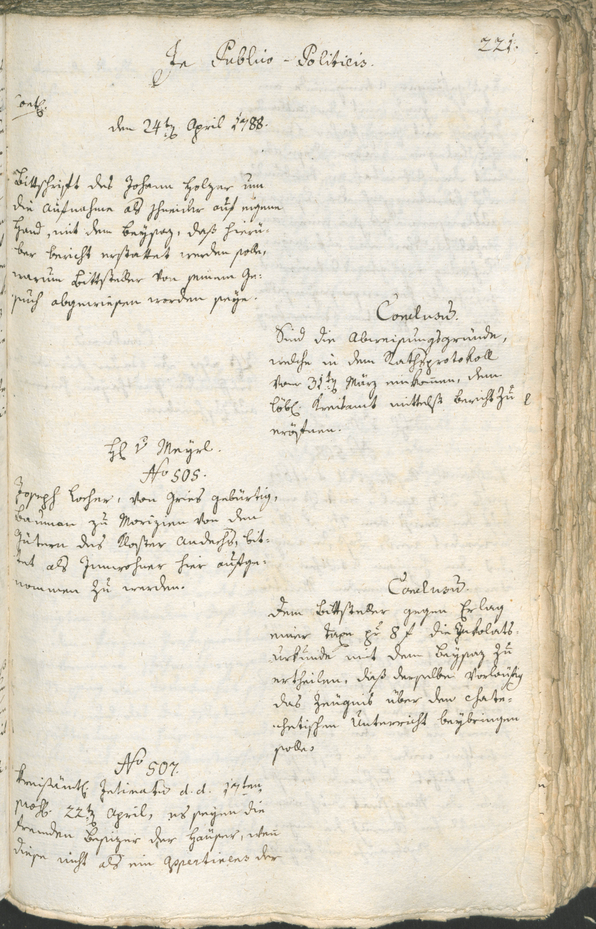 221.
In Publico-Politicis.
den 24ten April 1788.
Bittschrift des Johann Holzer um
die Aufnahme als Schneider auf eigene
Hand, mit dem Beysaz, daß hierü-
ber bericht erstattet werden solle,
warum Bittsteller von seinem Ge-
such abgewiesen worden seye.
Conclusum.
Sind die Abweisungsgründe,
welche in dem Rathsprotokoll
vom 31ten März einkomen, dem
löbl. Kreisamt mittelst bericht zu
eröfnen.
H. v Mayrl.
No 505.
Joseph Locher, von Gries gebürtig,
Bauman zu Morizien von den
Gütern des Kloster Andechs bit-
tet als Innwohner hier aufge-
nommen zu werden.
Conclusum.
Dem Bittsteller gegen Erlag
einer Taxe zu 8 f die Inkolats-
urkunde mit dem Beysaz zu
ertheilen, daß derselbe vorläufig
das Zeugnis über den chate-
chetischen Unterricht beybringen
solle.
No 507.
Kreisämtl. Intimatio d. d. 17ten
22ten April, es seyen die
fremden Besizer der Häuser, wen
diese nicht als ein appertinens der